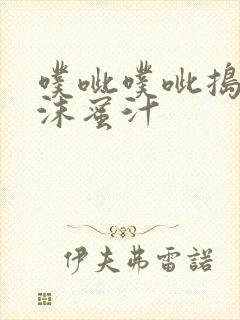 噗呲噗呲搗
沫蜜汁
伊夫弗雷諾